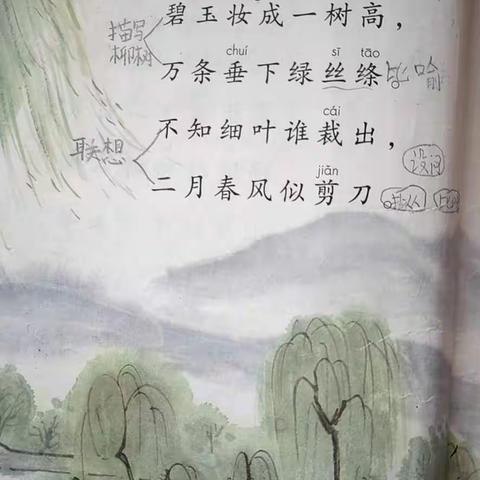 描写 碧玉妆成一树高，
柳树
chuí sī tāo
万条垂下绿丝绦 比喻
cái
联想 不知细叶谁裁出，
设问
jiǎn
二月春风似剪刀